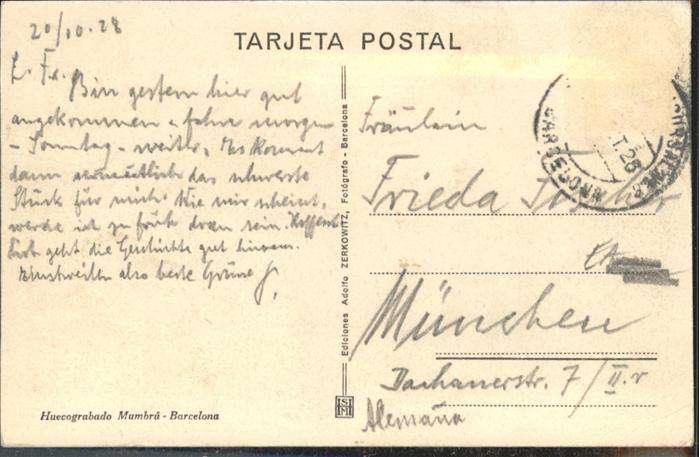 20/10.28
TARJETA POSTAL
L. Fr.
Bin gestern hier gut
angekommen u. fahre morgen
- Sonntag - weiter. Es kommt
dann vermutlich das schwerste
Stück für mich. Wie mir scheint,
werde ich zu früh dran sein. Hoffent-
lich geht die Geschichte gut hinaus.
Einstweilen also beste Grüsse
Ediciones Adolfo ZERKOWITZ, Fotógrafo - Barcelona
Fräulein
Frieda
München
Dachauerstr. 7/II.r
Alemaña
Huecograbado Mumbrá - Barcelona